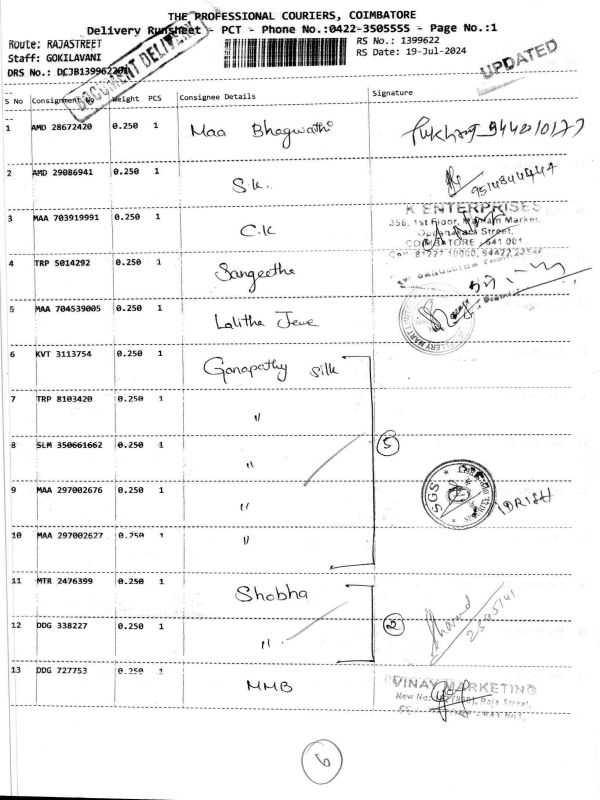 THE PROFESSIONAL COURIERS, COIMBATORE
Delivery Runsheet - PCT - Phone No.:0422-3505555 - Page No.:1
Route: RAJASTREET
RS No.: 1399622
Staff: GOKILAVANI
RS Date: 19-Jul-2024
DRS No.: DCJB139962201
DOCUMENT DELIVERY
UPDATED
S No Consignment No Weight PCS Consignee Details Signature
1 AMD 28672420 0.250 1 Maa Bhagwathi
2 AMD 29086941 0.250 1 S.K.
3 MAA 703919991 0.250 1 C.K
K ENTERPRISES
356, 1st Floor, Market,
Street,
COIMBATORE 641 001
4 TRP 5014292 0.250 1 Sangeetha
5 MAA 704539005 0.250 1 Lalitha
6 KVT 3113754 0.250 1 Ganapathy Silk
7 TRP 8103420 0.250 1 "
8 SLM 350661662 0.250 1 "
5
9 MAA 297002676 0.250 1 "
SGS
IDRISH
10 MAA 297002627 0.250 1 "
11 MTR 2476399 0.250 1 Shobha
12 DDG 338227 0.250 1 "
2
Sharad
13 DDG 727753 0.250 1 MMB
VINAY MARKETING
New No: Raja Street,
6